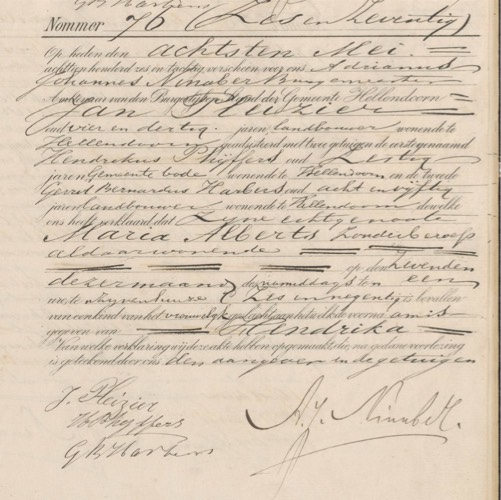 Nommer 76 (Zes en Zeventig)
Op heden den achtsten Mei
achttien honderd zes en tachtig verscheen voor ons, Adrianus
Johannes Burgemeester
Ambtenaar van den Burgerlijken Stand der Gemeente Hellendoorn
Jan
oud vier en dertig jaren, landbouwer wonende te
Hellendoorn geadsisteerd met twee getuigen de eerste genaamd
Hendrikus Phijffers oud Zestig
jaren Gemeentebode wonende te Hellendoorn en de tweede
Gerrit Bernardus Harbers oud acht en vijftig
jaren landbouwer wonende te Hellendoorn dewelke
ons heeft verklaard dat Zijne echtgenoote
Maria Alberts zonder beroep
aldaar wonende
op den Zevenden
dezer maand des namiddags ten een
ure te zijnen huize (Zes en negentig) is bevallen
van een kind van het vrouwelijk geslacht, aan hetwelk de voornaam is
gegeven van Hendrika
Van welke verklaring wij deze akte hebben opgemaakt, die, na gedane voorlezing
is geteekend door ons, den aangever en de getuigen
H Phijffers
G B Harbers